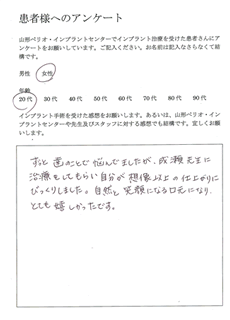 患者様へのアンケート
山形ペリオ・インプラントセンターでインプラント治療を受けた患者さんにア
ンケートをお願いしています。ご記入ください。お名前は記入なさらなくて結
構です。
男性 女性
年齢
20代 30代 40代 50代 60代 70代 80代 90代
インプラント手術を受けた感想をお願いします。あるいは、山形ペリオ・イン
プラントセンターや先生及びスタッフに対する感想でも結構です。宜しくお願
いします。
ずっと歯のことで悩んでましたが、成瀬先生に
治療をしてもらい自分が想像以上の仕上がりに
びっくりしました。自然と笑顔になる口元になり、
とても嬉しかったです。